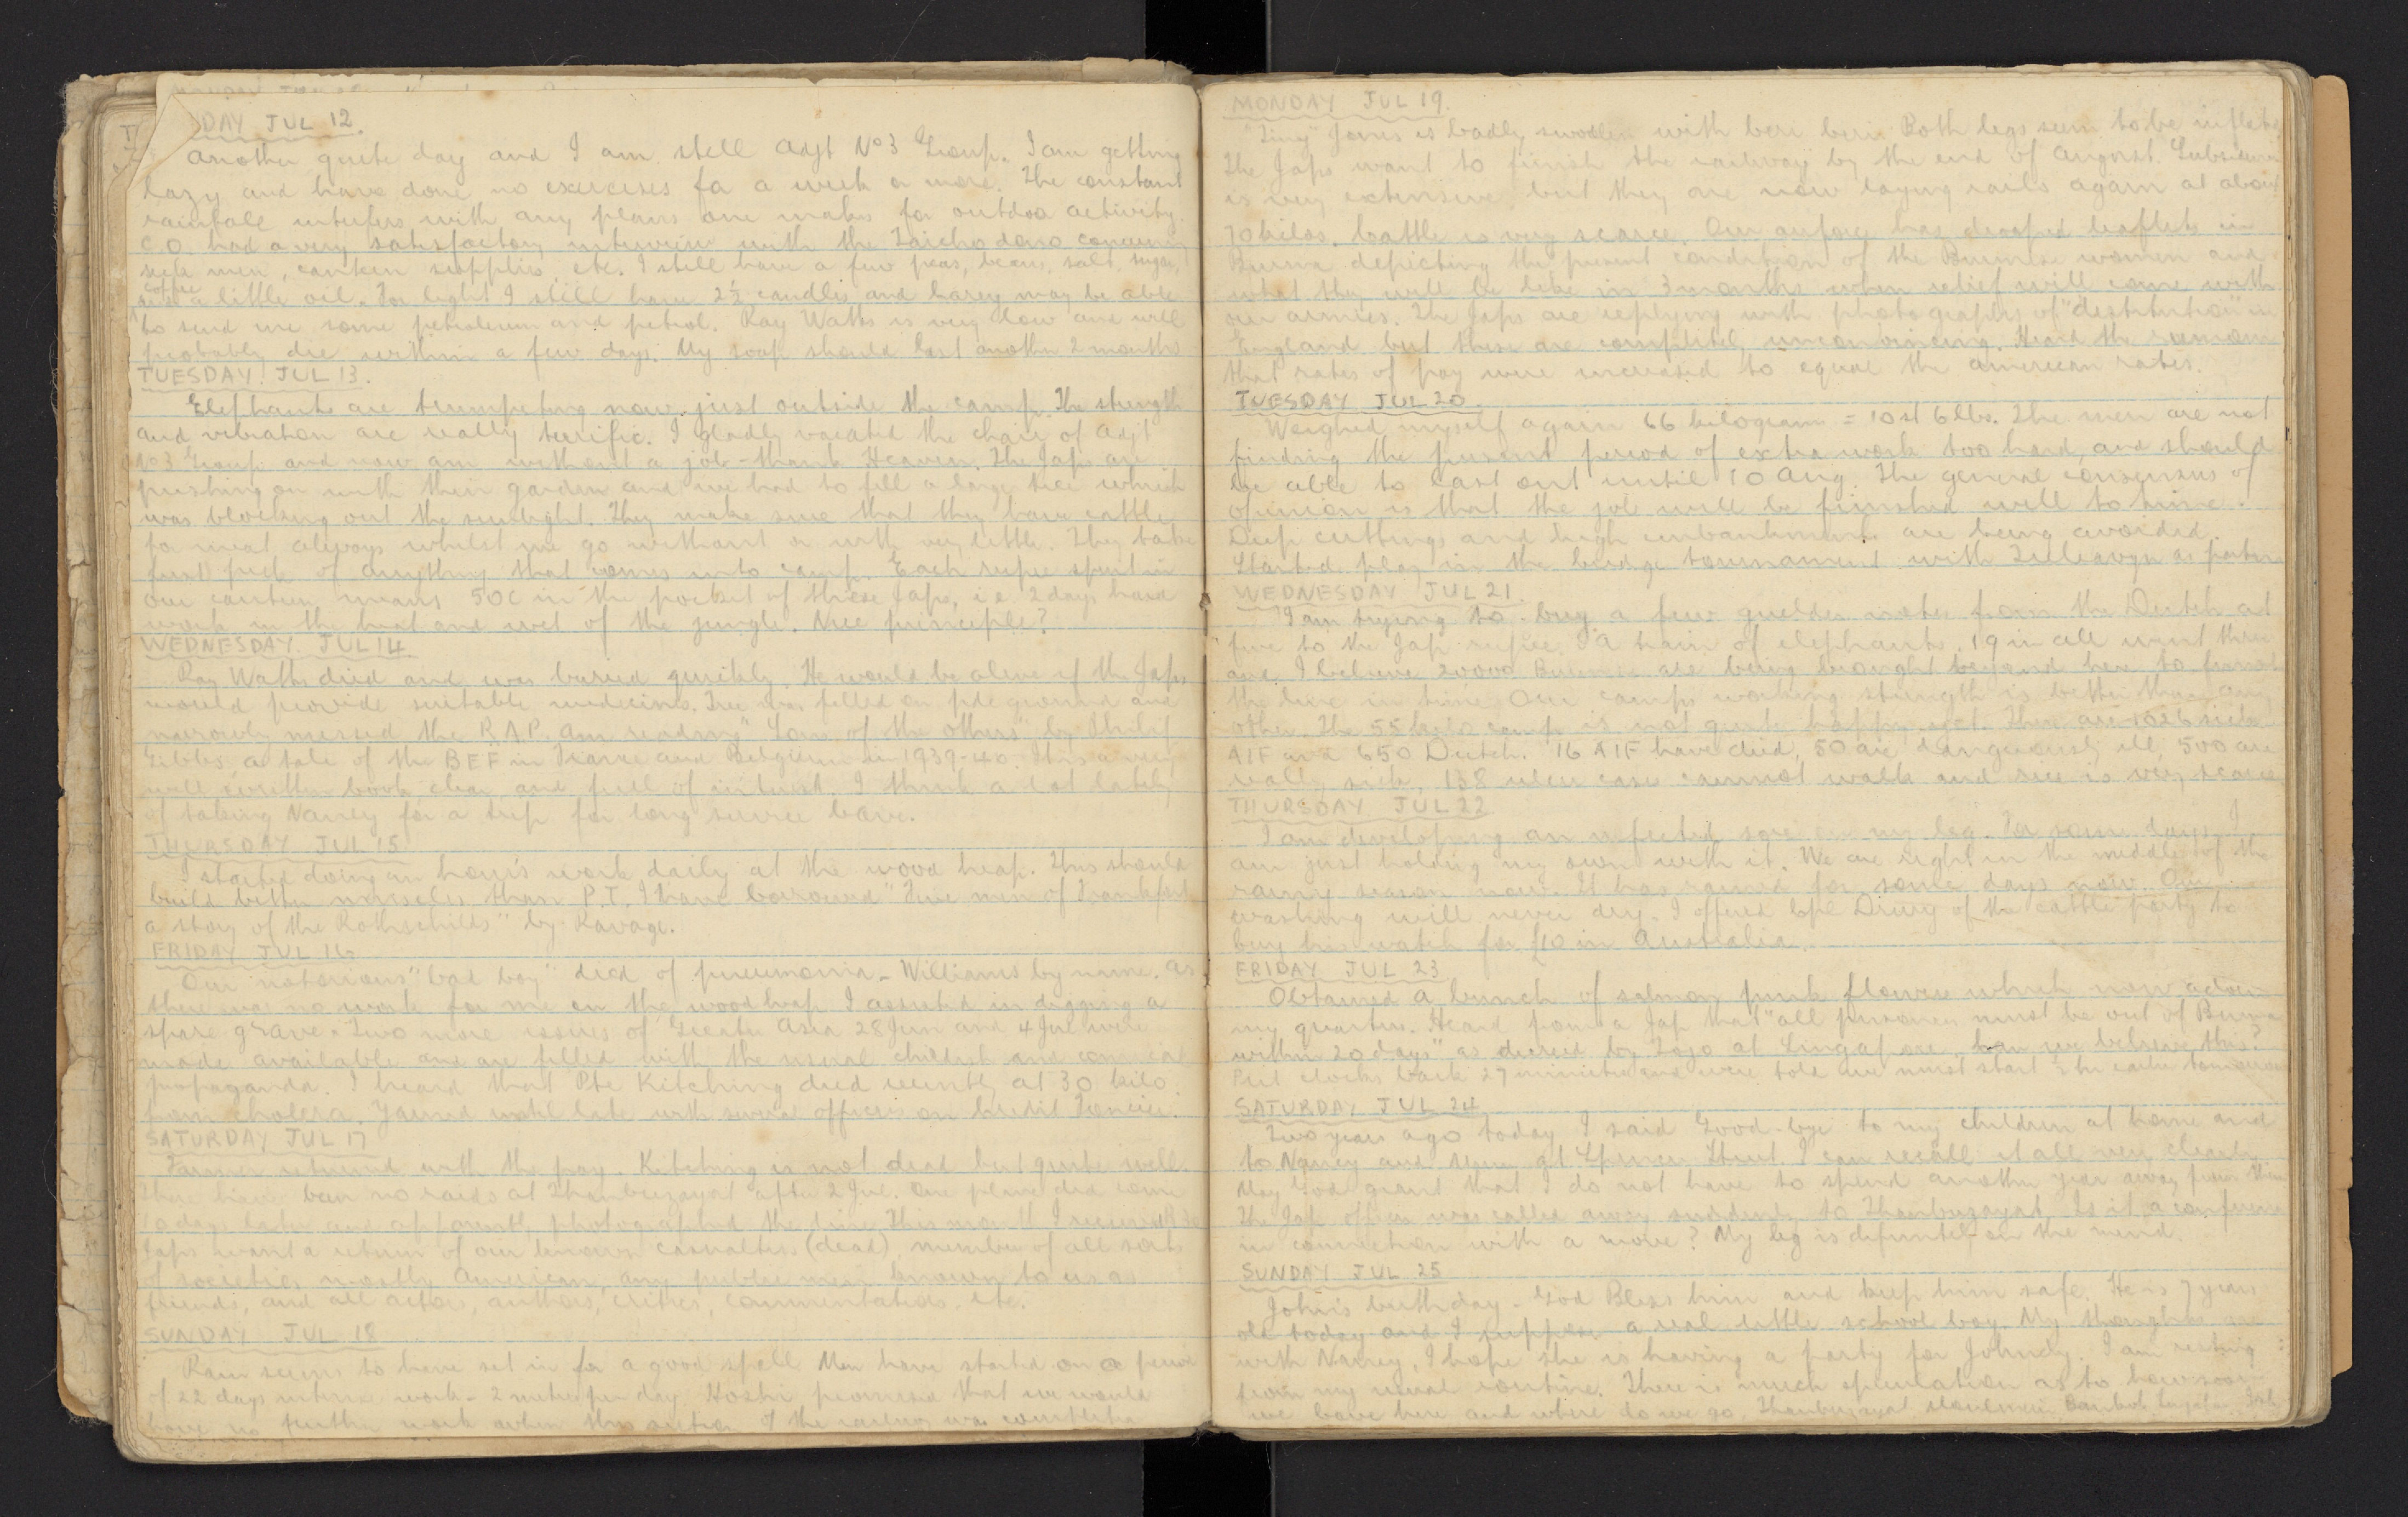 DAY JUL 12.
Another quiet day and I am still Adjt No 3 Group. I am getting
lazy and have done no exercises for a week or more. The constant
rainfall interferes with any plans one makes for outdoor activity.
C.O. had a very satisfactory interview with the Taicho dono concerning
sick men, canteen supplies, etc. I still have a few peas, beans, salt, sugar,
coffee
and a little oil. For light I still have 2½ candles and Harey may be able
to send me some petroleum and petrol. Ray Watts is very low and will
probably die within a few days. My soap should last another 2 months
TUESDAY. JUL 13.
Elephants are trumpeting now just outside the camp. The strength
and vibration are really terrific. I gladly vacated the chair of Adjt
No 3 Group and now am without a job - thank Heaven. The Japs are
pushing on with their garden and we had to fell a large tree which
was blocking out the sunlight. They make sure that they have cattle
for meat always whilst we go without or with very little. They take
first pick of anything that comes into camp. Each rupee spent in
our canteen means 50c in the pocket of these Japs, i.e. 2 days hard
work in the heat and wet of the jungle. Nice principle?
WEDNESDAY. JUL 14
Ray Watts died and was buried quickly. He would be alive if the Japs
would provide suitable medicines. Tree was felled on pde ground and
narrowly missed the R.A.P. Am reading "Love of the others" by Philip
Gibbs, a tale of the BEF in France and Belgium in 1939-40. It is a very
well written book, clear and full of interest. I think a lot lately
of taking Nancy for a trip for long service leave.
THURSDAY JUL 15
I started doing an hour's work daily at the wood heap. This should
build better muscles than P.T. I have borrowed "Five men of Frankfort
a story of the Rothschilds" by Ravage.
FRIDAY JUL 16
Our notorious "bad boy" died of pneumonia - Williams by name. As
there was no work for me on the wood heap I assisted in digging a
spare grave. Two more issues of Greater Asia 28 Jun and 4 Jul were
made available and are filled with the usual childish and comical
propaganda. I heard that Pte Kitching died recently at 30 kilo
from cholera. Yarned until late with several officers on
SATURDAY JUL 17
Farmer returned with the pay. Kitching is not dead but quite well.
There have been no raids at Thanbuzayat after 2 Jul. One plane did come
10 days later and apparently photographed the line. This month I received
Japs want a return of our known casualties (dead), members of all sorts
of societies mostly American, any public men known to us as
friends, and all actors, authors, critics, commentators, etc.
SUNDAY JUL 18
Rain seems to have set in for a good spell. Men have started on a period
of 22 days intense work - 2 metres per day. Hoshi promised that we would
have no further work when this section of the railway was completed
MONDAY JUL 19.
"Tiny" Jones is badly swollen with beri beri. Both legs seem to be inflated
The Japs want to finish the railway by the end of August. Subsidence
is very extensive but they are now laying rails again at about
70 kilos. Cattle is very scarce. Our airforce has dropped leaflets in
Burma depicting the present condition of the Burmese women and
what they will be like in 3 months when relief will come with
our armies. The Japs are replying with photographs of "destitution" in
England but these are completely unconvincing. Heard the rumour
that rates of pay were increased to equal the American rates.
TUESDAY JUL 20.
Weighed myself again 66 kilograms = 10 st 6 lbs. The men are not
finding the present period of extra work too hard, and should
be able to last out until 10 Aug. The general consensus of
opinion is that the job will be finished well to time.
Deep cuttings and high embankments are being avoided.
Started play in the bridge tournament with as partner
WEDNESDAY JUL 21.
I am trying to buy a few guilder notes from the Dutch at
five to the Jap rupee. A train of elephants, 19 in all went thru
and I believe 20000 Burmese are being brought beyond here to finish
the line in time. Our camps working strength is better than any
other. The 55 kilo camp is not quite happy yet. There are 1026 sick
AIF and 650 Dutch. 16 AIF have died, 50 are dangerously ill, 500 are
really sick, 138 ulcer cases cannot walk and rice is very scarce
THURSDAY JUL 22
I am developing an infected sore on my leg. For some days I
am just holding my own with it. We are right in the middle of the
rainy season now. It has rained for some days now. Our
washing will never dry. I offered Cpl Drury of the cattle party to
buy his watch for £10 in Australia.
FRIDAY JUL 23
Obtained a bunch of salmon pink flowers which now adorn
my quarters. Heard from a Jap that "all prisoners must be out of Burma
within 20 days" as decreed by Tojo at Singapore. Can we believe this?
Put clocks back 27 minutes and were told we must start ½ hr earlier tomorrow
SATURDAY JUL 24
Two years ago today I said Good-bye to my children at home and
to Nancy and at Spencer Street. I can recall it all very clearly
May God grant that I do not have to spend another year away from them
The Jap officer was called away suddenly to Thanbuzayat. Is it a conference
in connection with a move? My leg is definitely on the mend.
SUNDAY JUL 25
John's birthday - God Bless him and keep him safe. He is 7 years
old today and I suppose a real little school boy. My thoughts are
with Nancy, I hope she is having a party for Johndy. I am resting
from my usual routine. There is much speculation as to how soon
we leave here and where do we go, Thanbuzayat, Moulmein, Bankok,